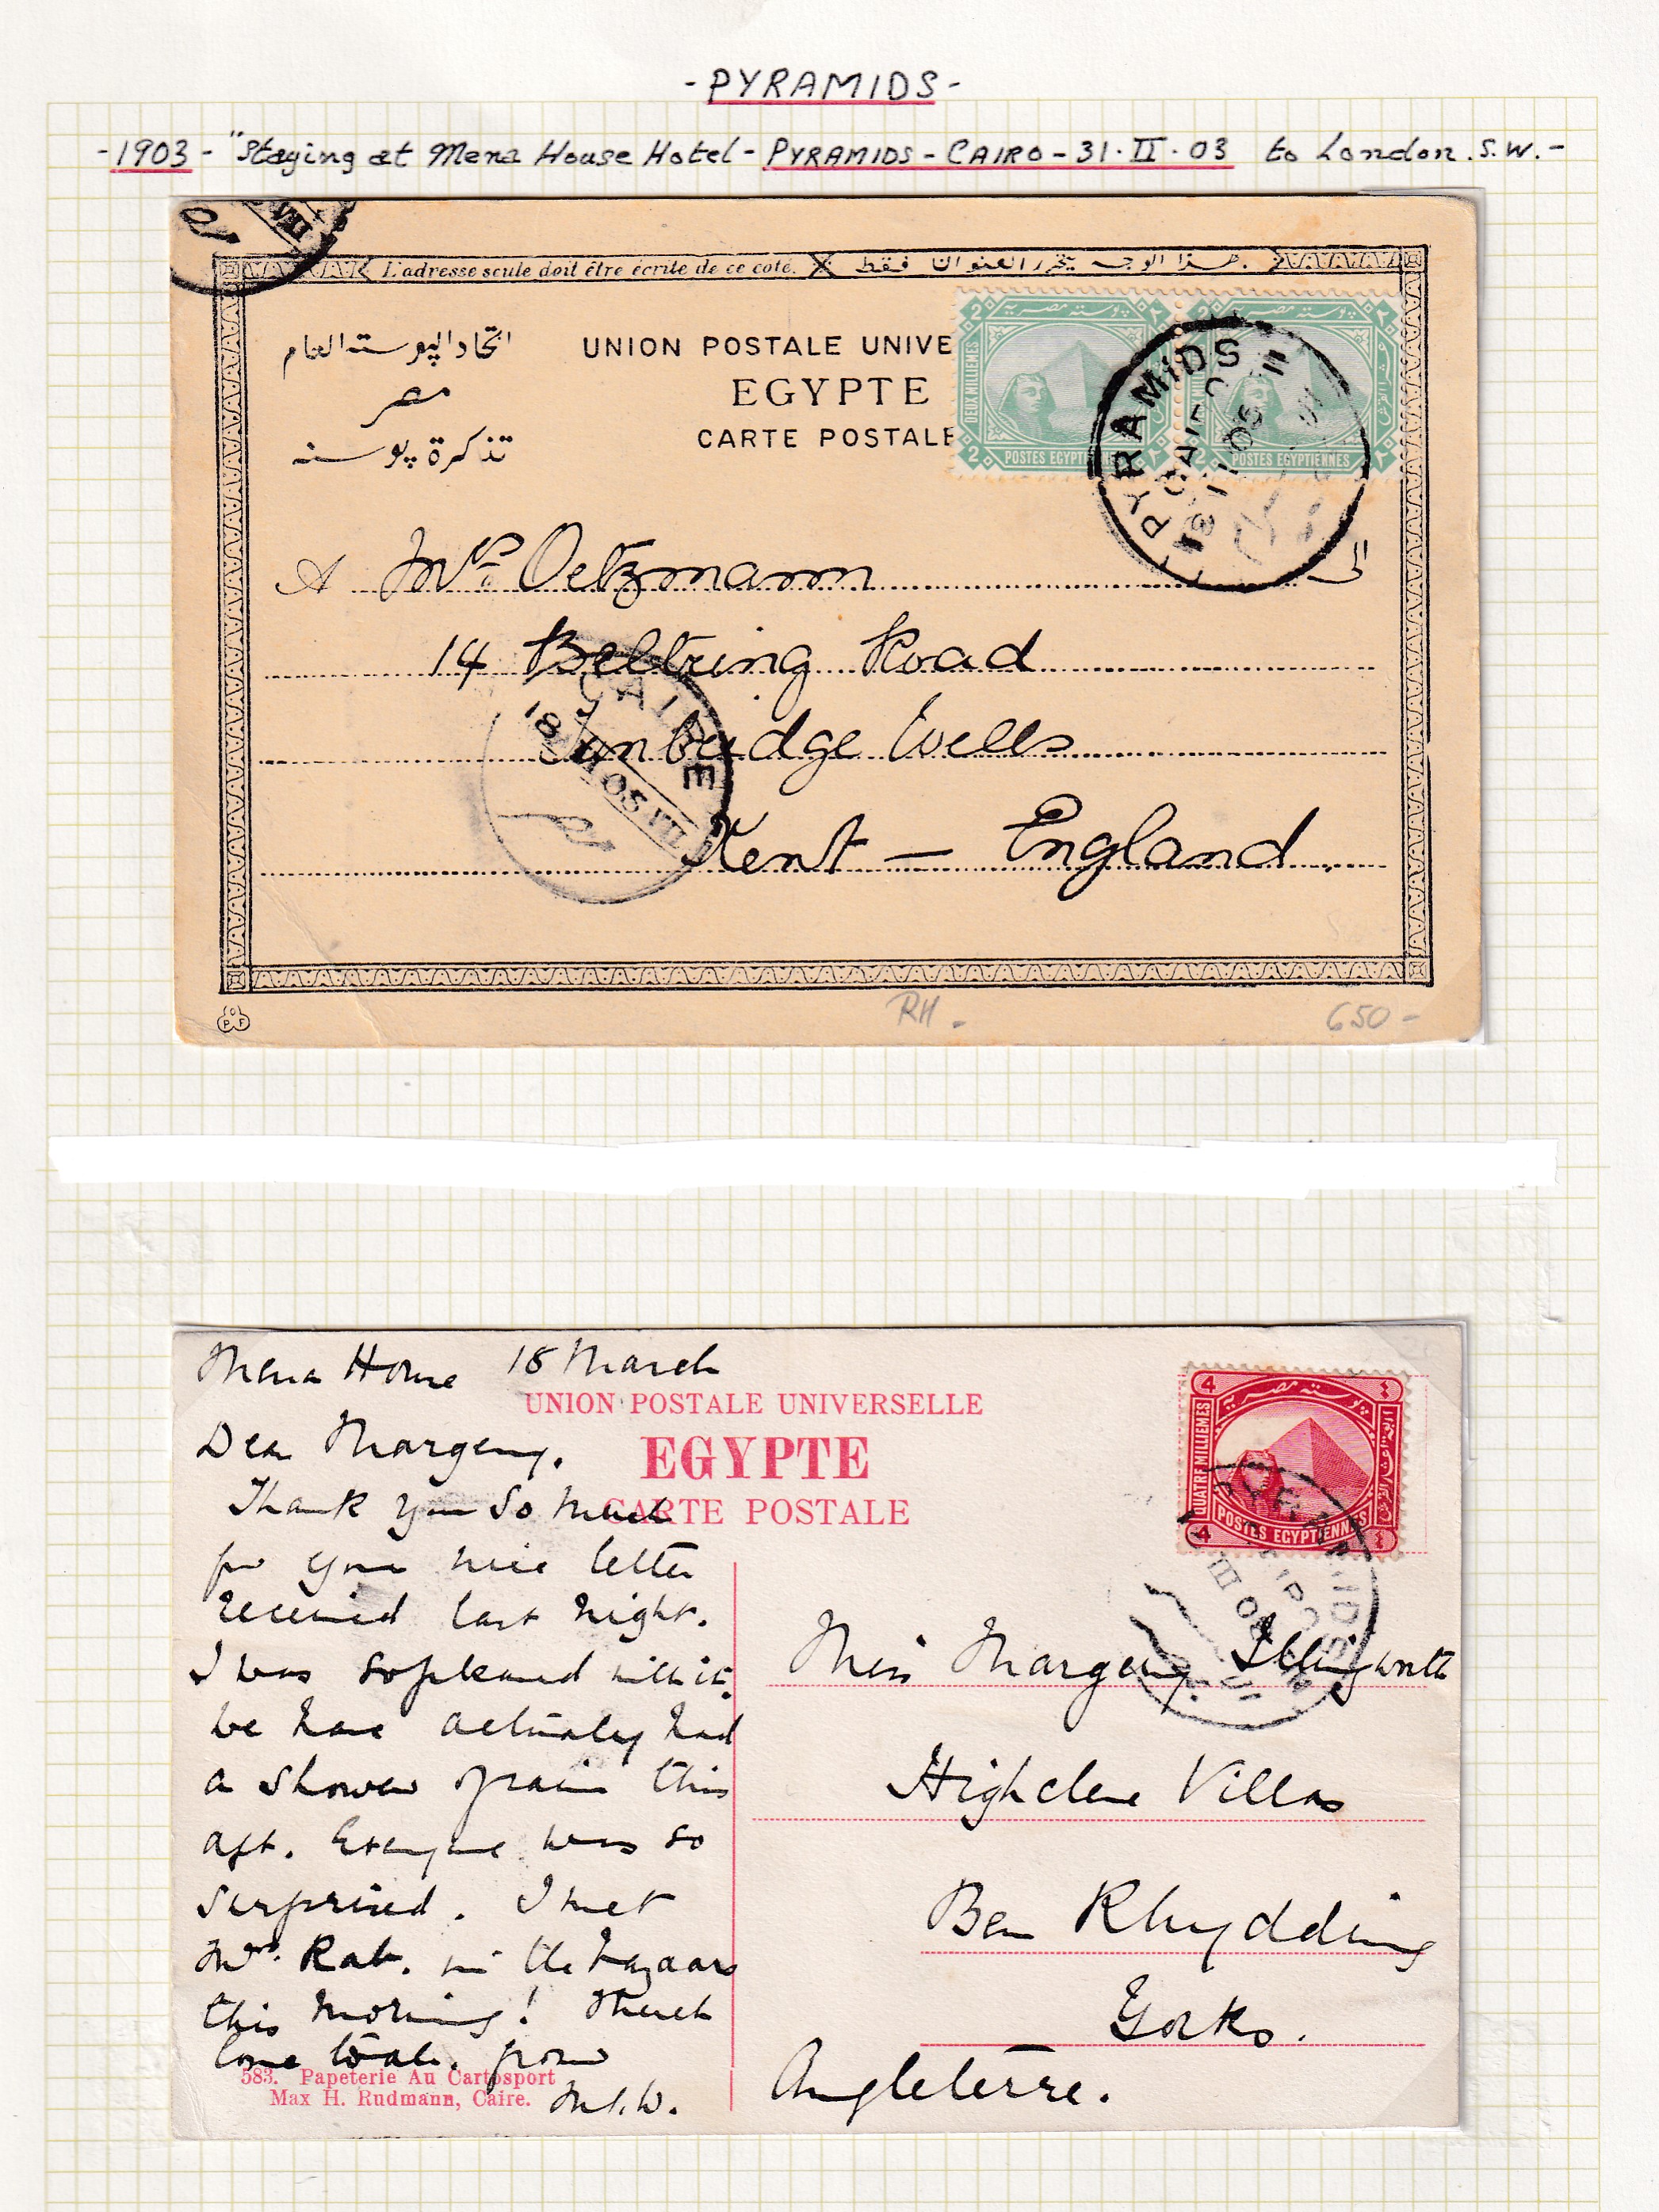 - PYRAMIDS -
- 1903 - "Staying at Mena House Hotel - PYRAMIDS - CAIRO - 31·II·03 to London. S.W. -
L'adresse seule doit être écrite de ce coté. هذا الوجه يحرر العنوان فقط.
اتحاد البوستة العام
مصر
تذكرة بوستة
UNION POSTALE UNIVE
EGYPTE
CARTE POSTALE
2 2
DEUX MILLIEMES
POSTES EGYPTIENNES
PYRAMIDS
CAIRO
A Mrs Oetzmann الى
14 Beltring Road
Tunbridge Wells
Kent — England.
CAIRE
18 II 05 VII
PF
RH - 650 -
Mena House 18 March
UNION POSTALE UNIVERSELLE
EGYPTE
CARTE POSTALE
Dear Margery.
Thank you so much
for your nice letter
received last night.
I was so pleased with it.
We have actually had
a shower of rain this
aft. Everyone was so
surprised. I met
Mrs. Rab. in the bazaars
this morning! Much
love to all. from
M.W.
583. Papeterie Au Cartosport
Max H. Rudmann, Caire.
4
QUATRE MILLIEMES
POSTES EGYPTIENNES
4
Miss Margery Illingworth
Highclere Villas
Ben Rhydding
Yorks.
Angleterre.